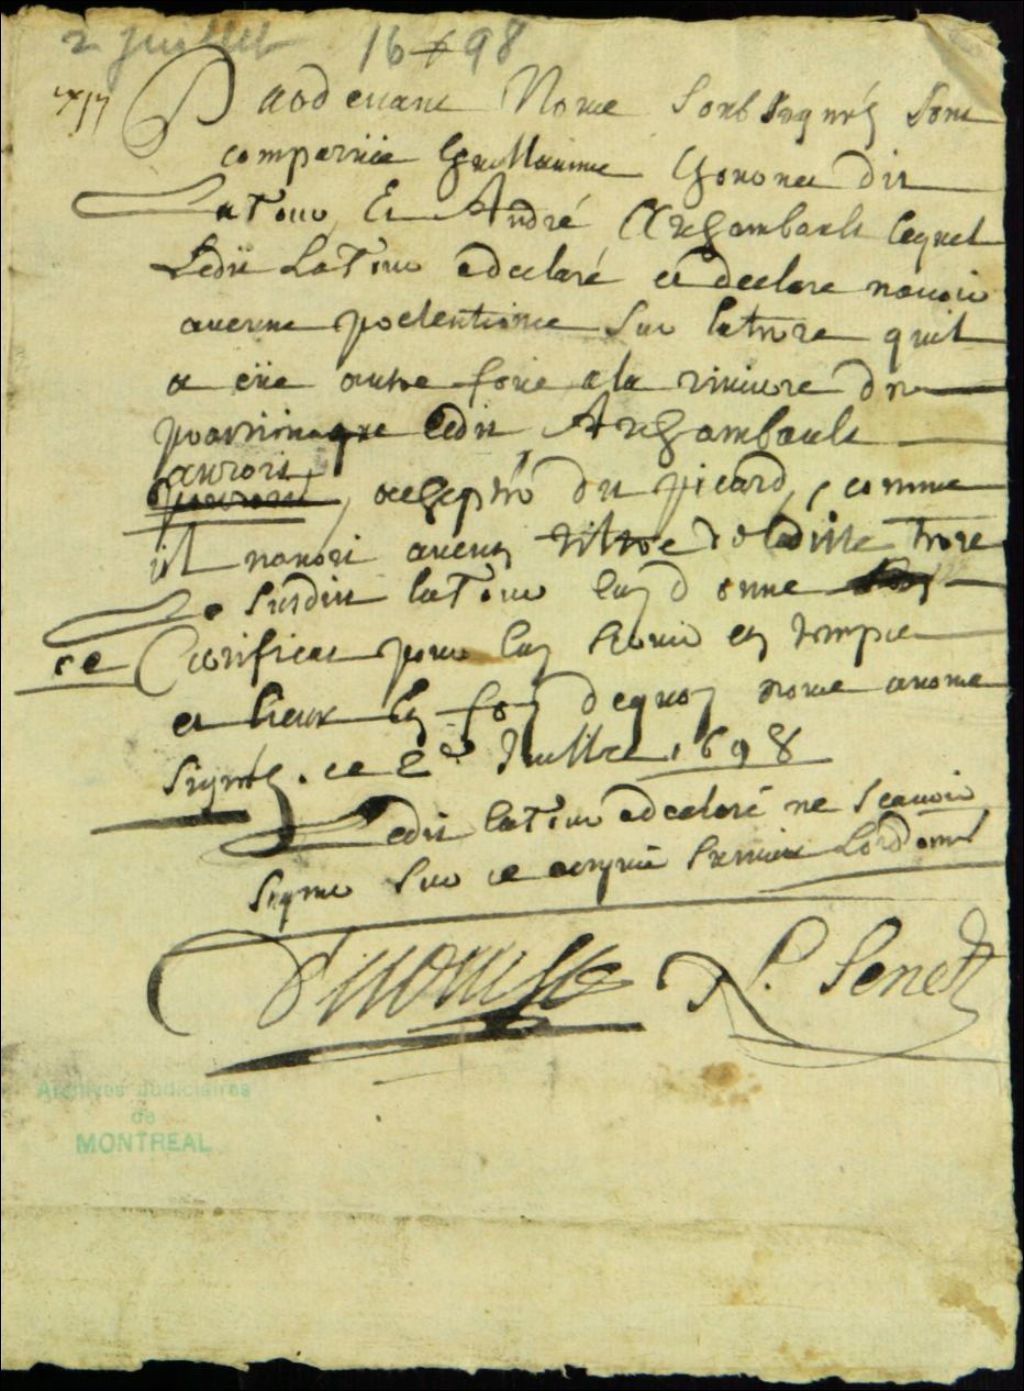 2 juillet 1698
Pardevant Nous Soubsignés Sont
comparüs Guillaume dit
LaTour Et André Archambault lequel
Ledit LaTour a declaré et declare navoir
aucune pretentions Sur la terre quil
a eüe autre fois a la riviere des
ledit Archambault
auroit
du picard, comme
il navoit aucun tiltre de laditte terre
Ledit laTour luy donne
ce Certificat pour luy Servir en temps
et lieux En foy dequoy nous avons
Signés. ce 2e Juillet 1698
Ledit laTour a declaré ne Scavoir
Signer Sur ce enquis Suivant Lordonnce
P. Senet
Archives Judiciaires
de
MONTREAL